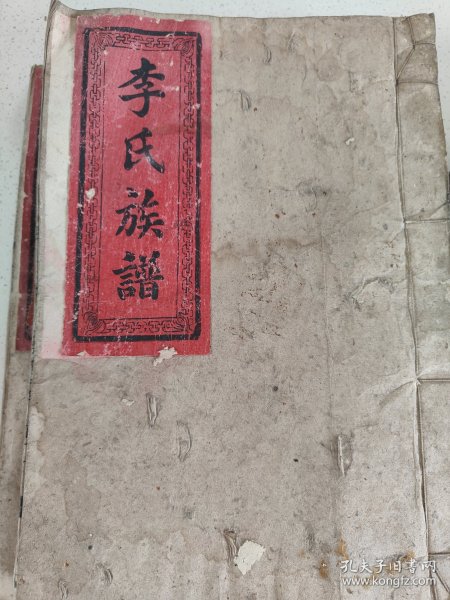 李氏族譜
孔夫子旧书网
www.kongfz.com